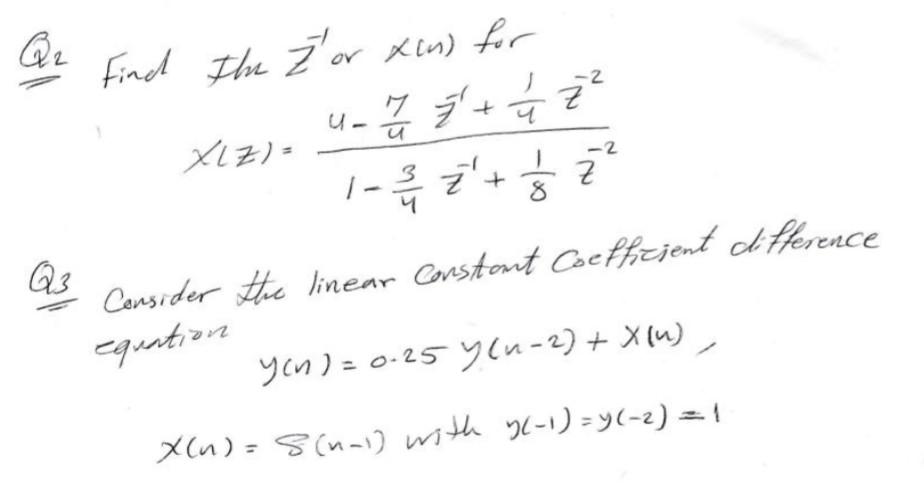 Q2 Find the Z⁻¹ or x(n) for
X(Z) = (4 - 7/4 Z⁻¹ + 1/4 Z⁻²) / (1 - 3/4 Z⁻¹ + 1/8 Z⁻²)
Q3 Consider the linear constant coefficient difference
equation
y(n) = 0.25 y(n-2) + x(n),
x(n) = δ(n-1) with y(-1) = y(-2) = 1